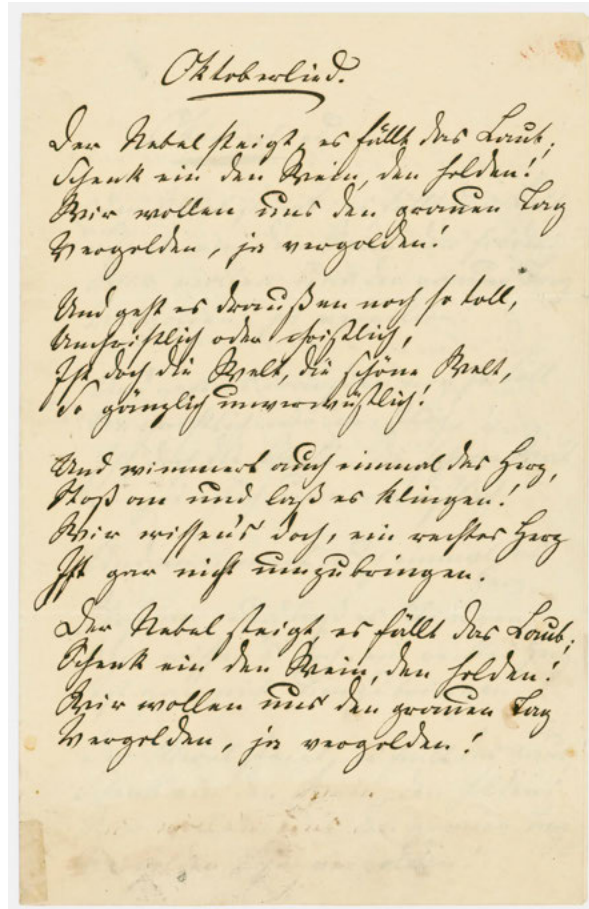 Oktoberlied.
Der Nebel steigt, es fällt das Laub;
Schenk ein den Wein, den holden!
Wir wollen uns den grauen Tag
Vergolden, ja vergolden!
Und geht es draußen noch so toll,
Unchristlich oder christlich,
Ist doch die Welt, die schöne Welt,
So gänzlich unverwüstlich!
Und wimmert auch einmal das Herz,
Stoß an und laß es klingen!
Wir wissen's doch, ein rechtes Herz
Ist gar nicht umzubringen.
Der Nebel steigt, es fällt das Laub;
Schenk ein den Wein, den holden!
Wir wollen uns den grauen Tag
Vergolden, ja vergolden!